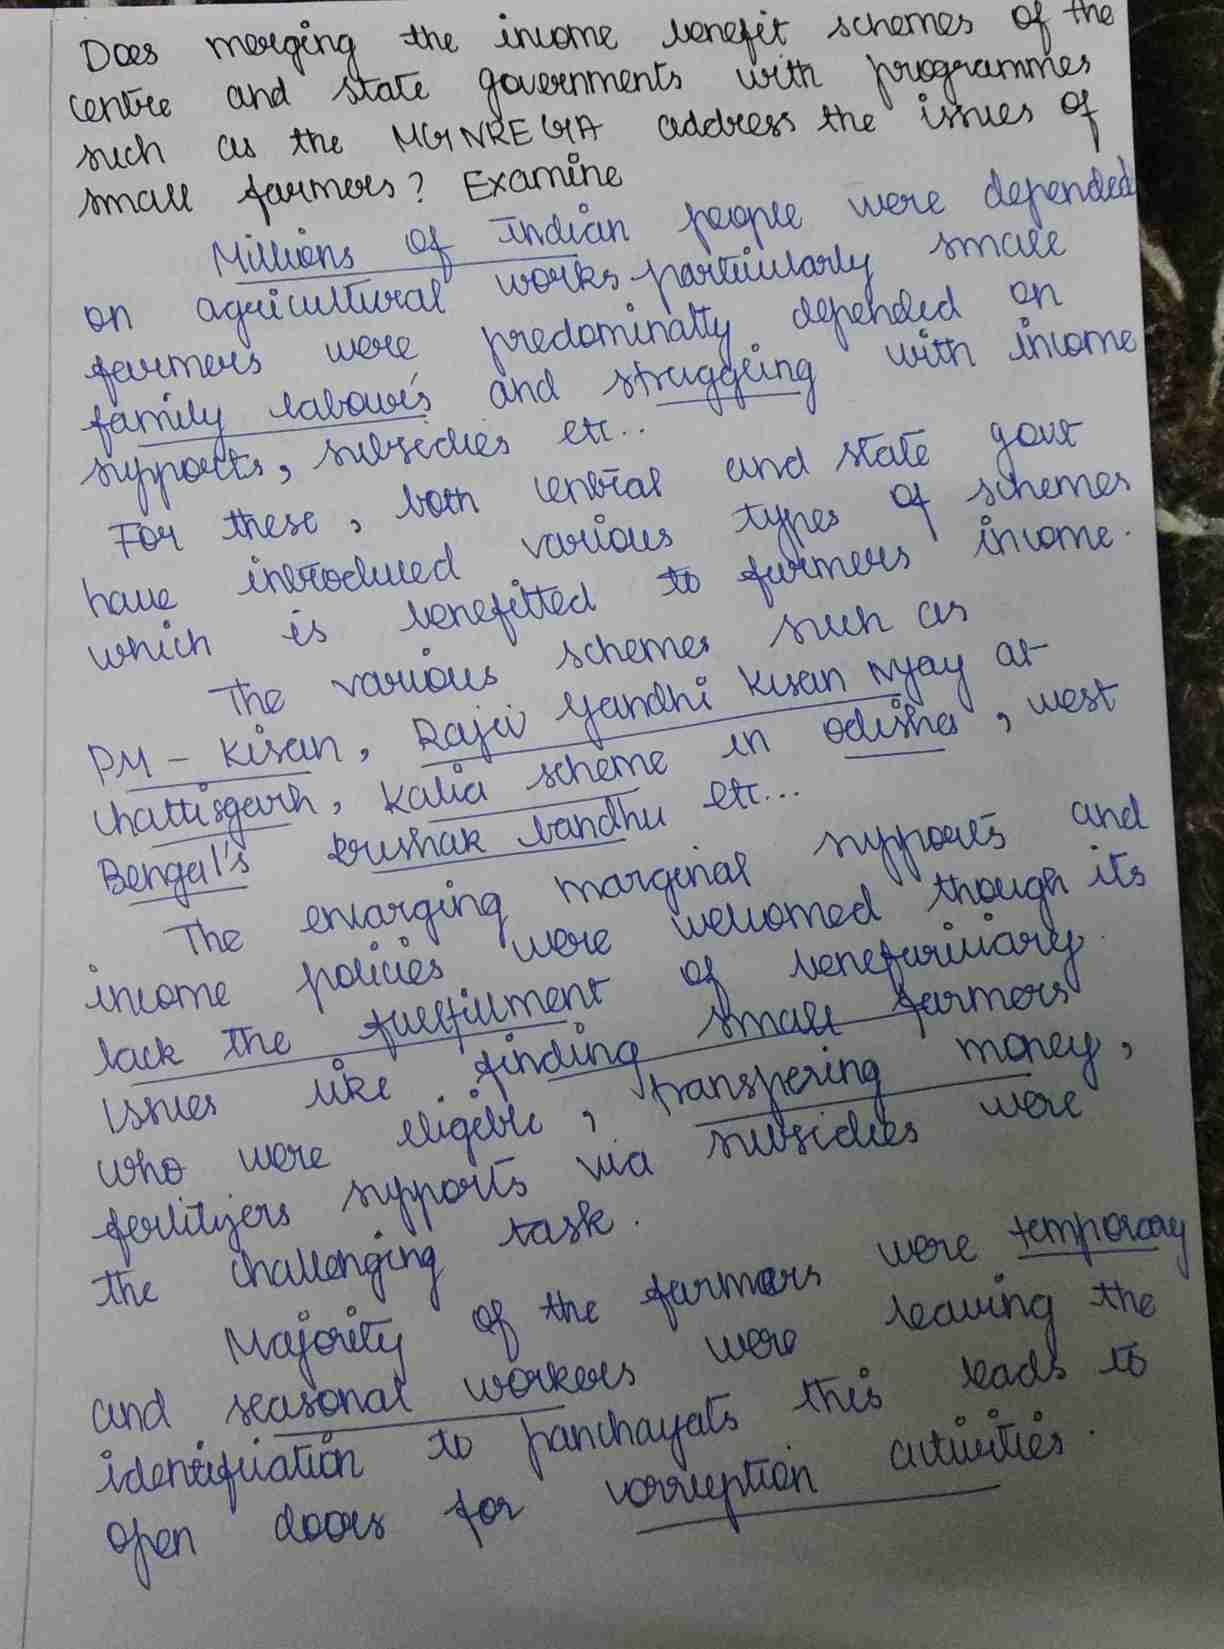 Does merging the income benefit schemes of the
centre and state governments with programmes
such as the MGNREGA address the issues of
small farmers? Examine
Millions of Indian people were depended
on agricultural works particularly small
farmers were predominatly depended on
family labour's and struggeing with income
supports, subsidies etc..
For these, both central and state govt
have introduced various types of schemes
which is benefitted to farmers income.
The various schemes such as
PM - Kisan, Rajiv Gandhi Kisan Nyay at
Chattisgarh, Kalia scheme in odisha, west
Bengal's krushak bandhu etc...
The enlarging marginal supports and
income policies were welcomed though its
lack the fuelfillment of beneficiary.
Issues like finding small farmers
who were eligible, transfering money,
fertilizers supports via subsidies were
the challenging task.
Majority of the farmers were temporary
and seasonal workers were leaving the
identification to panchayats this leads to
open doors for corruption activities.